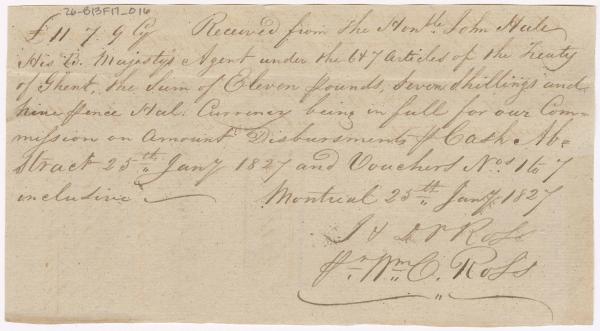 26-B13F17_016
£11. 7. 9 Cy Received from the Honble. John Hale
His B. Majesty's Agent under the 6 & 7 Articles of the Treaty
of Ghent, the Sum of Eleven pounds, seven shillings and
nine pence Hal: Currency being in full for our Com-
mission on Amount Disbursments pr Cash Ab-
stract 25th Jany 1827 and Vouchers Nos 1 to 7
inclusive Montreal 25th Jany. 1827
J & D P Ross
pr. Wm. C. Ross